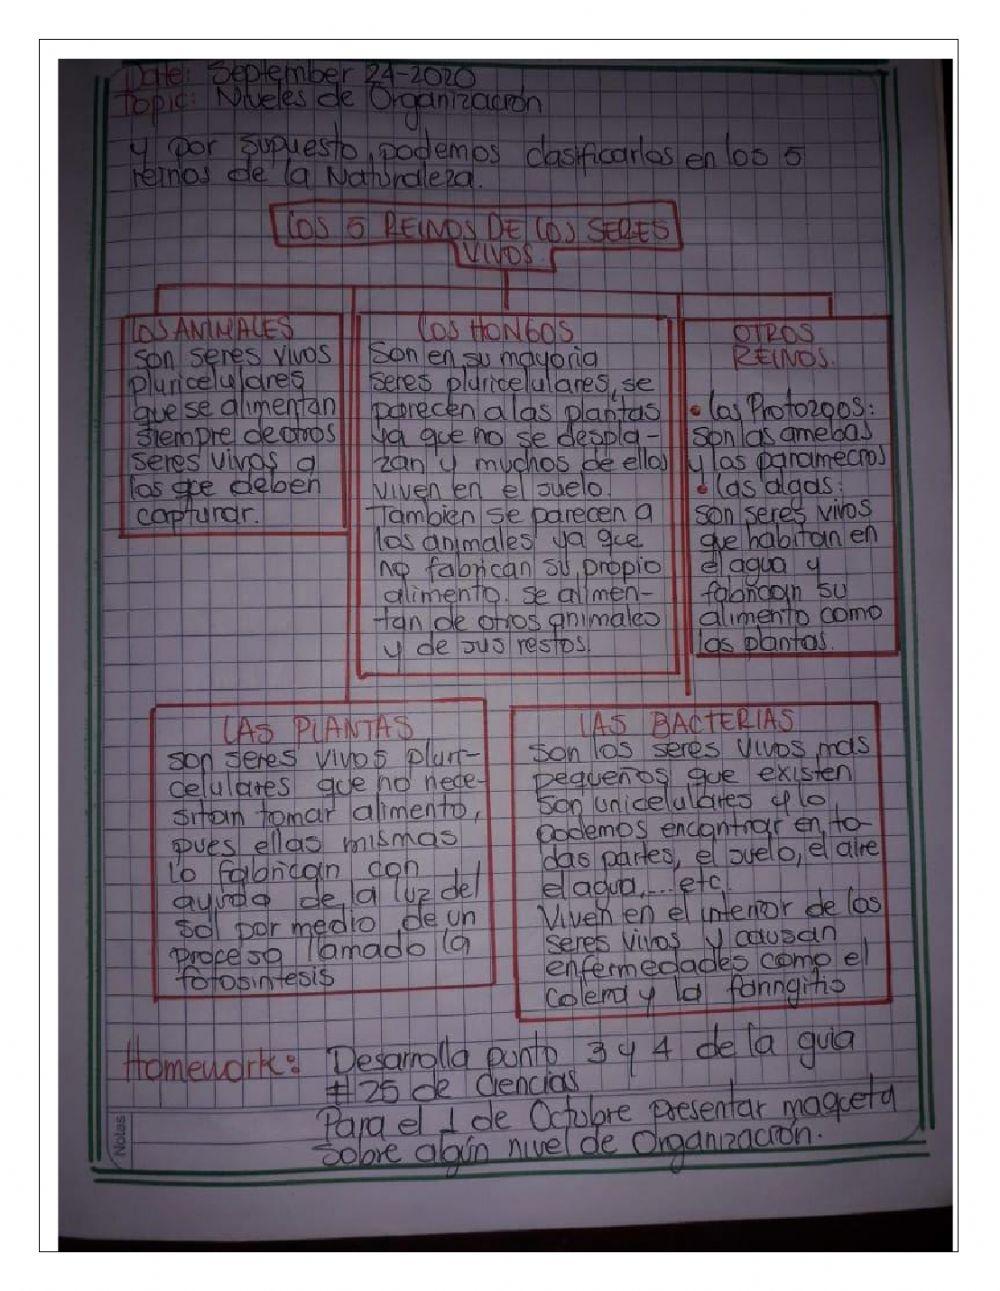 Date: September 24-2020
Topic: Niveles de Organización
y por supuesto, podemos clasificarlos en los 5
reinos de la Naturaleza.
LOS 5 REINOS DE LOS SERES
VIVOS.
LOS ANIMALES
son seres vivos
pluricelulares
que se alimentan
siempre de otros
seres vivos a
los que deben
capturar.
LOS HONGOS
Son en su mayoria
seres pluricelulares, se
parecen a las plantas
ya que no se despla-
zan y muchos de ellos
viven en el suelo.
Tambien se parecen a
los animales ya que
no fabrican su propio
alimento. se alimen-
tan de otros animales
y de sus restos.
OTROS
REINOS.
• Los Protozoos:
son las amebas
y los paramecios
• Las algas:
son seres vivos
que habitan en
el agua y
fabrican su
alimento como
las plantas.
LAS PLANTAS
son seres vivos pluri-
celulares que no nece-
sitan tomar alimento,
pues ellas mismas
lo fabrican con
ayuda de la luz del
sol por medio de un
proceso llamado la
fotosintesis
LAS BACTERIAS
son los seres vivos mas
pequeños que existen
son unicelulares y lo
podemos encontrar en to-
das partes, el suelo, el aire
el agua,... etc.
Viven en el interior de los
seres vivos y causan
enfermedades como el
colera y la faringitis
Homework: Desarrolla punto 3 y 4 de la guia
#25 de Ciencias
Para el 1 de Octubre presentar maqueta
sobre algún nivel de Organización.
Notas